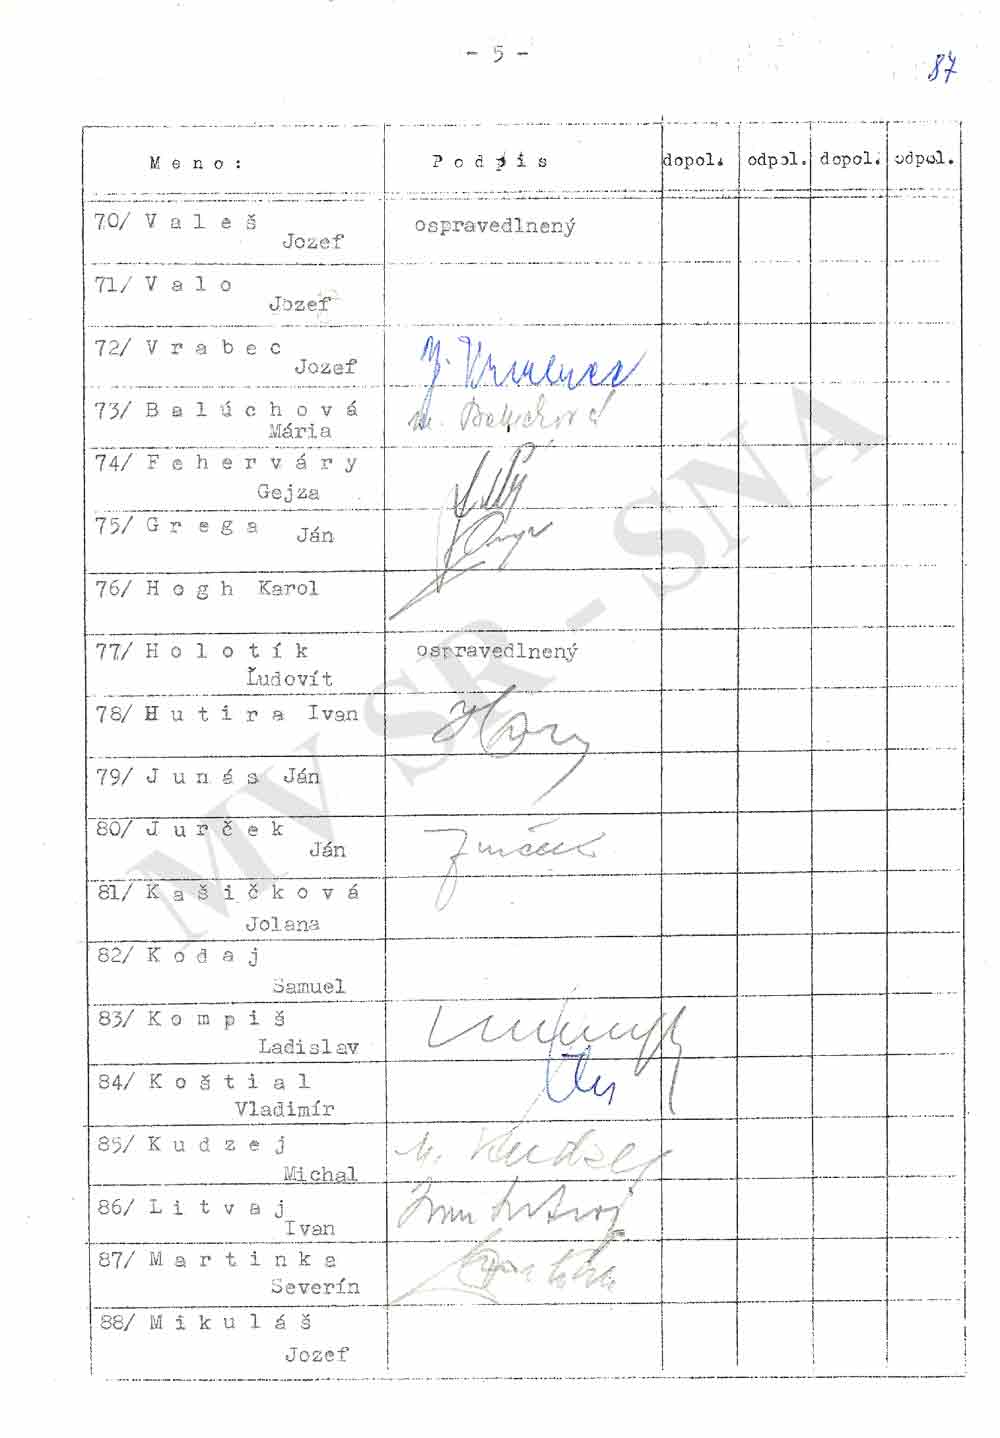 - 5 -
87
Meno: Podpis dopol. odpol. dopol. odpol.
70/ Valeš ospravedlnený
Jozef
71/ Valo
Jozef
72/ Vrabec
Jozef
73/ Balúchová
Mária
m. Baluchová
74/ Feherváry
Gejza
75/ Grega Ján
76/ Hogh Karol
77/ Holotík ospravedlnený
Ľudovít
78/ Hutira Ivan
79/ Junás Ján
80/ Jurček
Ján
Jurček
81/ Kašičková
Jolana
82/ Kodaj
Samuel
83/ Kompiš
Ladislav
84/ Koštial
Vladimír
85/ Kudzej
Michal
M. Kudzej
86/ Litvaj
Ivan
Ivan Litvaj
87/ Martinka
Severín
88/ Mikuláš
Jozef
MV SR - SNA